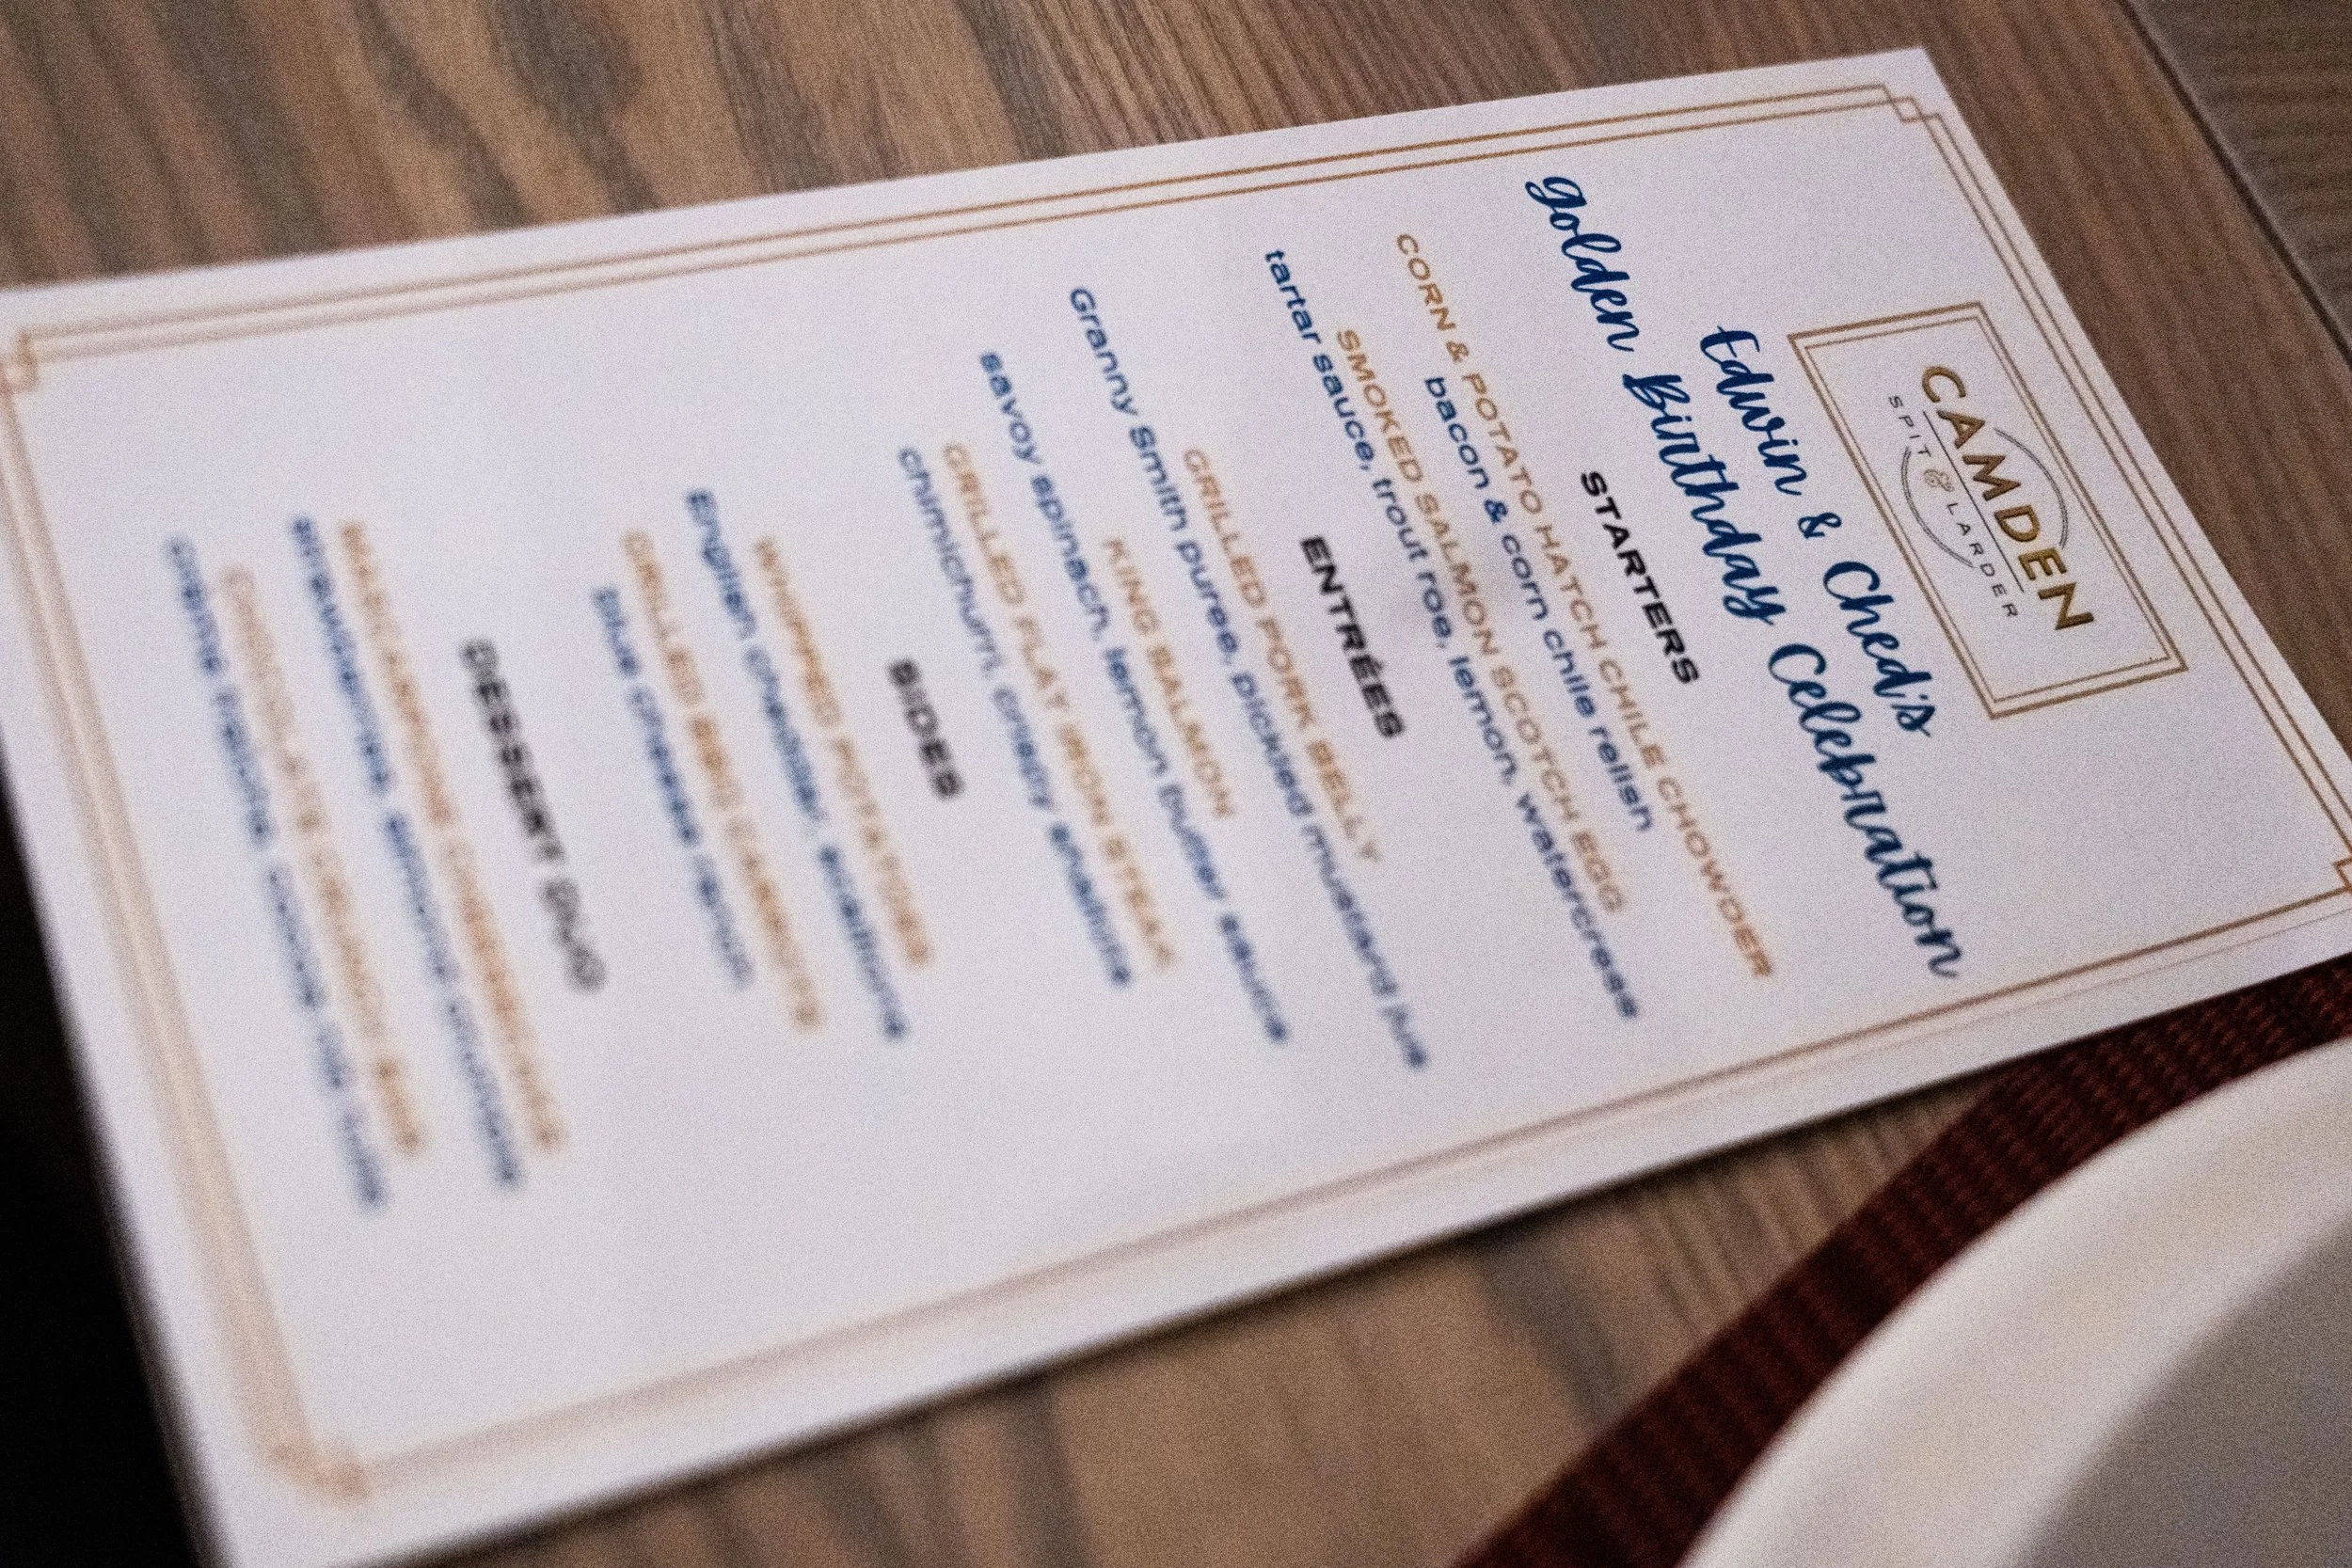 CAMDEN
SPIT & LARDER
Edwin & Ched's
golden Birthday Celebration
STARTERS
CORN & POTATO HATCH CHILE CHOWDER
bacon & corn chile relish
SMOKED SALMON SCOTCH EGG
tartar sauce, trout roe, lemon, watercress
ENTRÉES
GRILLED PORK BELLY
Granny Smith puree, pickled mustard jus
KING SALMON
savoy spinach, lemon butter sauce
GRILLED FLAT IRON STEAK
chimichurri, crispy shallots
SIDES
WHIPPED POTATOES
English cheddar, scallions
GRILLED BBQ CARROTS
blue cheese ranch
DESSERT DUO
MASCARPONE CHEESECAKE
strawberries, almond